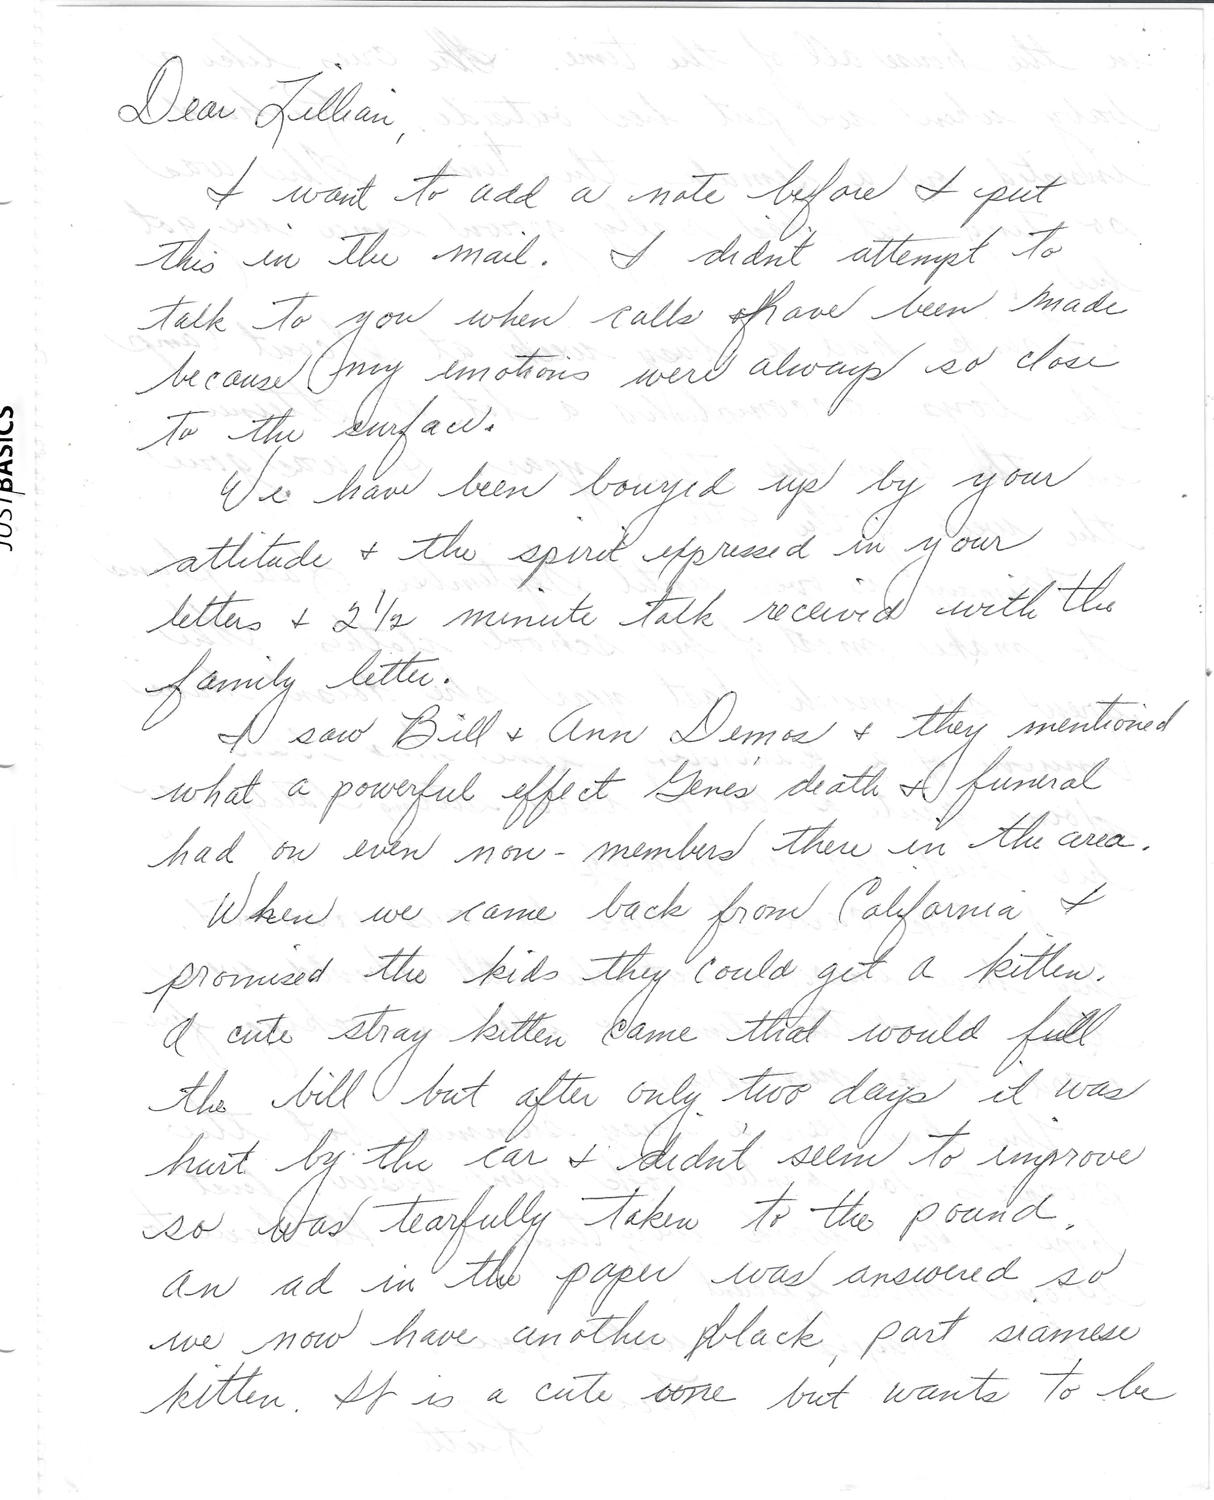 Dear Lillian,
I want to add a note before I put
this in the mail. I didn't attempt to
talk to you when calls have been made
because my emotions were always so close
to the surface.
We have been bouyed up by your
attitude & the spirit expressed in your
letters & 2 1/2 minute talk received with the
family letter.
I saw Bill & Ann Demos & they mentioned
what a powerful effect Gene's death & funeral
had on even non-members there in the area.
When we came back from California I
promised the kids they could get a kitten.
A cute stray kitten came that would full
the bill but after only two days it was
hurt by the car & didn't seem to improve
so was tearfully taken to the pound.
An ad in the paper was answered so
we now have another black, part siamese
kitten. It is a cute one but wants to be
JUST BASICS